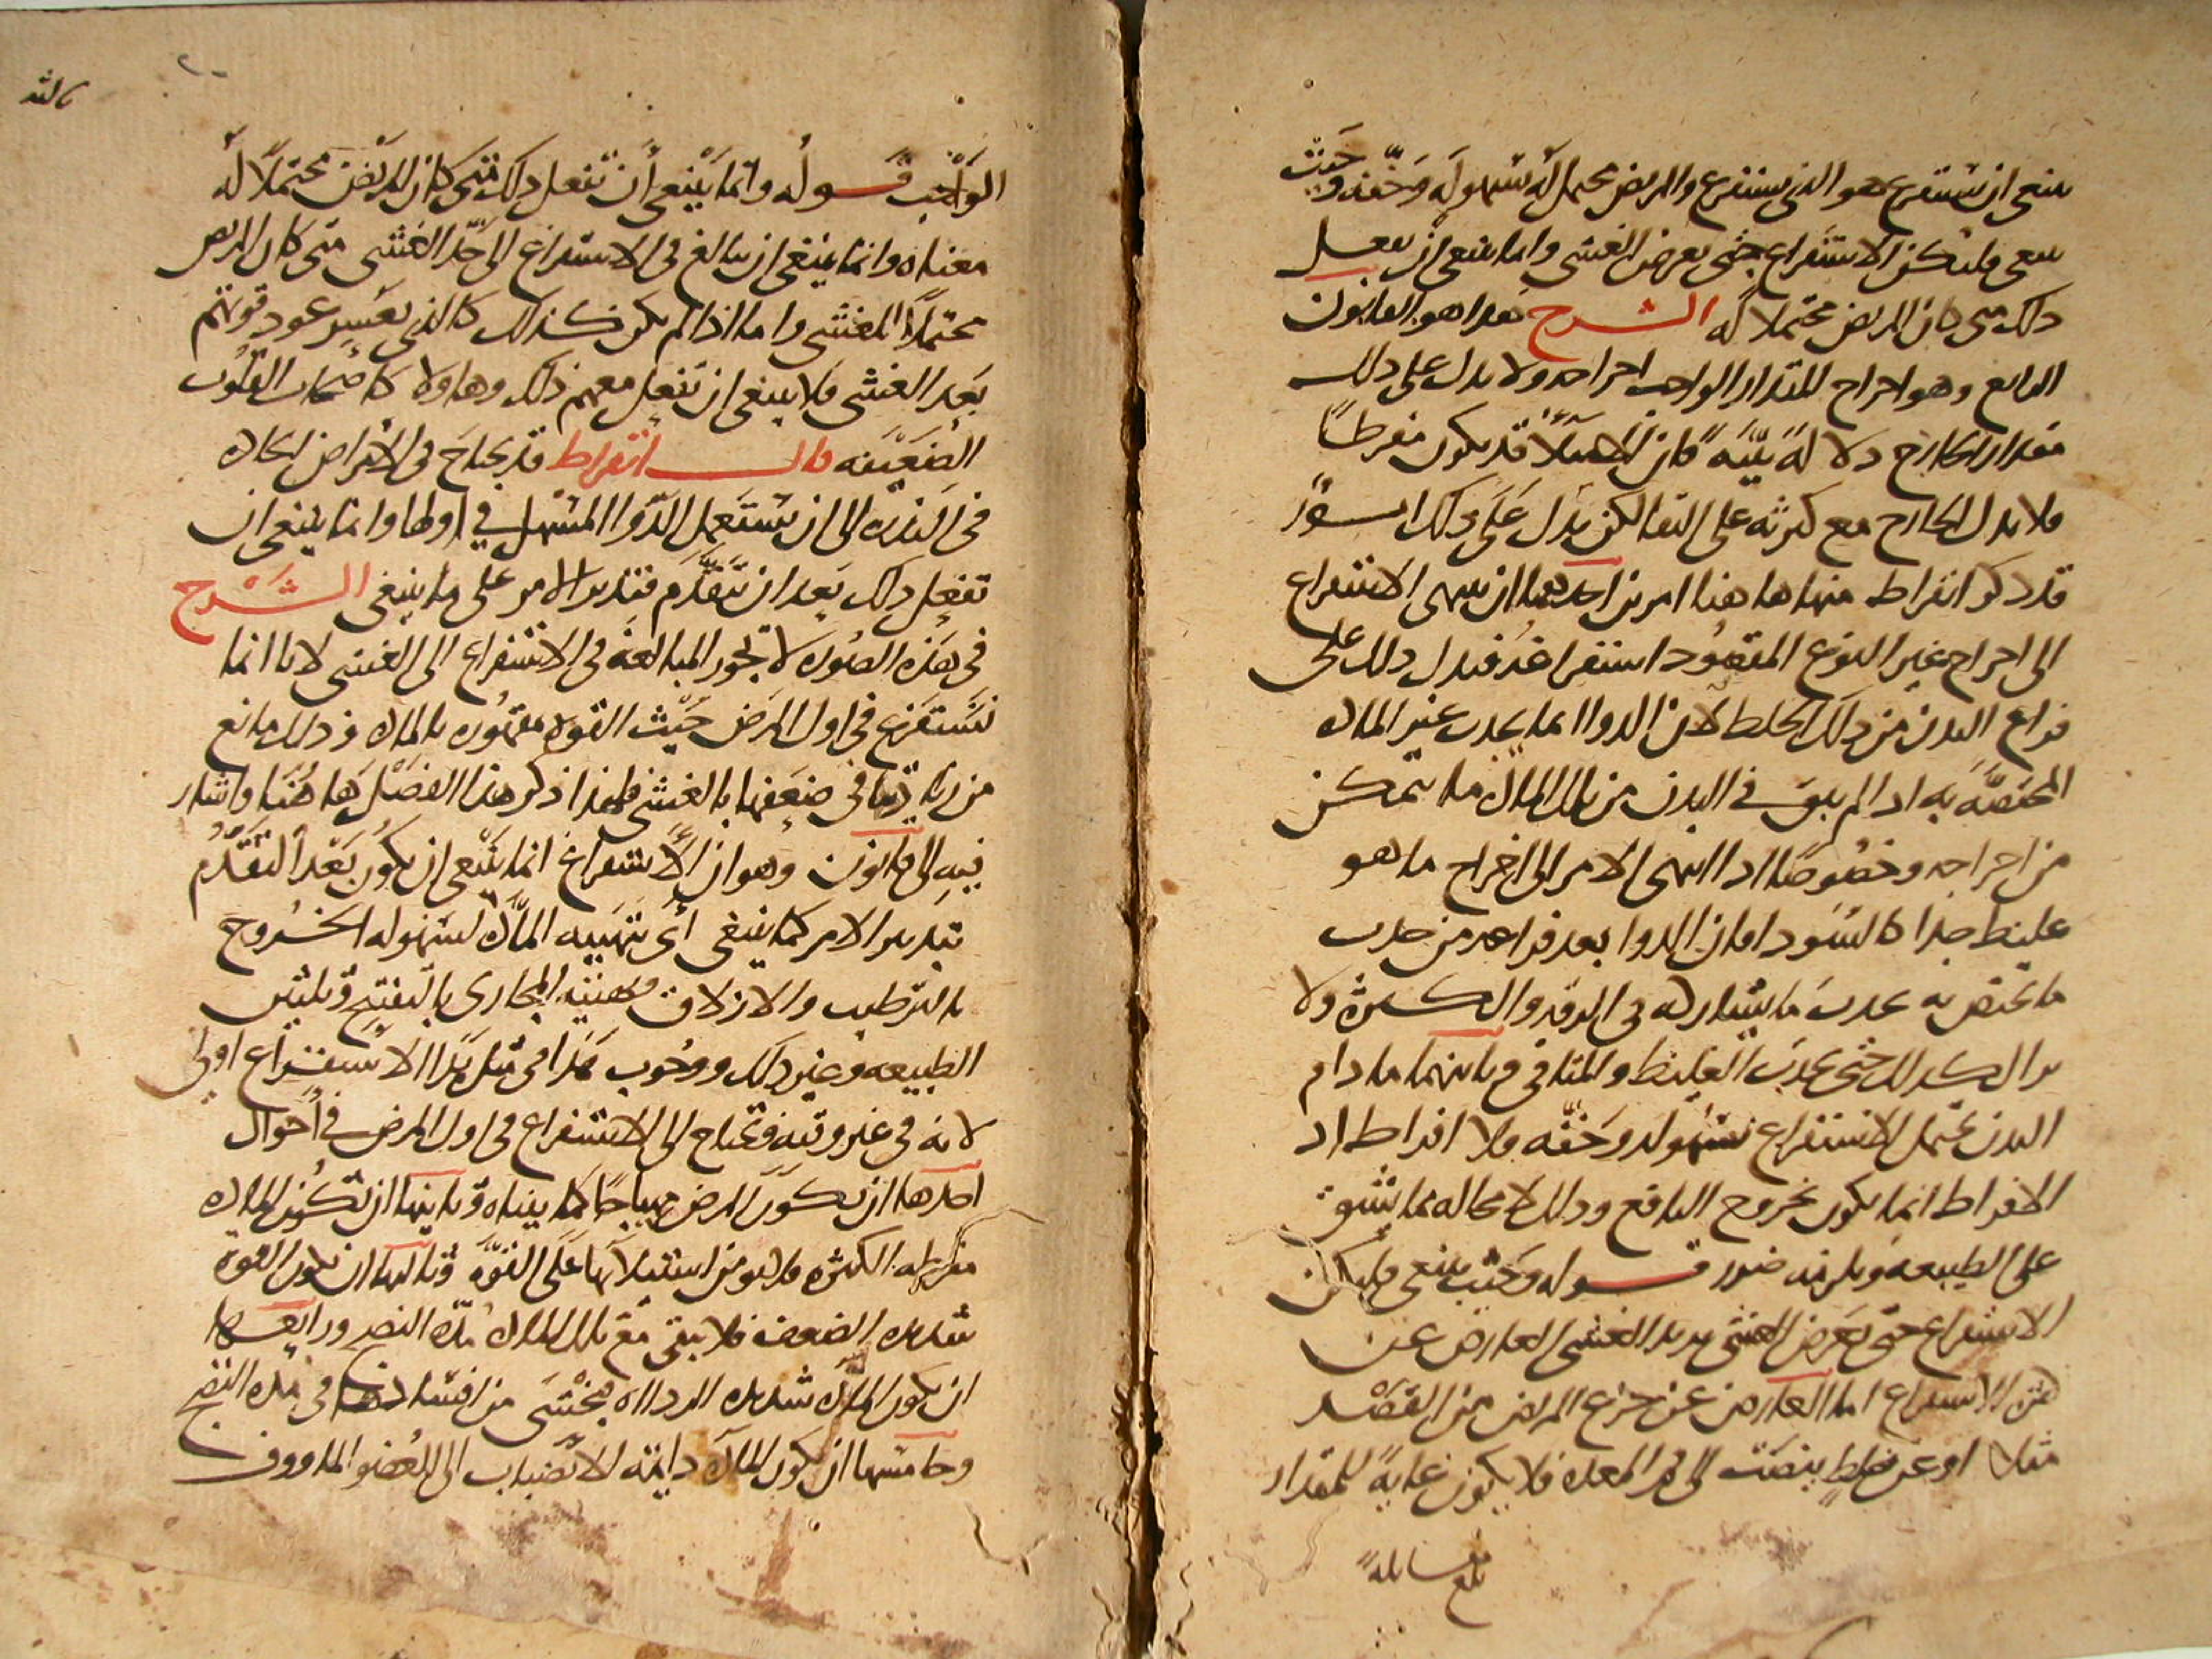 ينبغي ان يستفرغ هو الذي يستفرغ والمريض محتمل له بسهوله وخفه وحيث
ينبغي فليكن الاستفراغ حتى يعرض الغشي وانما ينبغي ان يفعل
ذلك متى كان المريض محتملا له الشرح هذا هو القانون
الرابع وهو اخراج المقدار الواجب اخراجه ولا يدل على ذلك
مقدار الخارج دلاله بينه فان قد يكون مفرطا
فلا يدل الخارج مع كثرته على النقا لكن يدل على ذلك امور
قد ذكر ابقراط منها هاهنا امرين احدهما ان ينتهي الاستفراغ
الى اخراج غير النوع المقصود استفراغه فيدل ذلك على
فراغ البدن من ذلك الخلط لان الدوا انما يجذب غير الماده
المختصه به اذا لم يبق في البدن من تلك الماده ما يتمكن
من اخراجه وخصوصا اذا انتهى الامر الى اخراج ما هو
غليظ جدا كالسودا فان الدوا بعد فراغه من جذب
ما يختص به يجذب ما يشاركه في الرقه والكثره ولا
يزال كذلك حتى يجذب الغليظ والمنافي وثانيهما ما دام
البدن يحتمل الاستفراغ بسهوله وخفه فلا افراط اذ
الافراط انما يكون بخروج النافع وذلك لا محاله مما يشق
على الطبيعه ويلزمه ضرر قوله وحيث ينبغي فليكن
الاستفراغ حتى يعرض الغشي يريد الغشي العارض عن
الاستفراغ اما العارض عن جزع المريض من الفصد
مثلا او عن خلط ينصب الى فم المعده فلا يكون غاية للمقدار
بلغ مقابله
الواجب قوله وانما ينبغي أن تفعل ذلك متى كان المريض محتملا له
معناه وانما ينبغي ان يبالغ في الاستفراغ الى حد الغشي متى كان المريض
محتملا للغشي واما اذا لم يكن كذلك كالذي يعسر عود قوتهم
بعد الغشي فلا ينبغي ان تفعل معهم ذلك وهاولا كاصحاب القلوب
الضعيفه قال ابقراط قد يحتاج في الامراض الحاده
في الندره الى ان تستعمل الدوا المسهل في اولها وانما ينبغي ان
تفعل ذلك بعد ان تتقدم فتدبر الامر على ما ينبغي الشرح
في هذه الصوره لا تجوز المبالغه في الاستفراغ الى الغشي لانا انما
نستفرغ في اول المرض حيث القوه مقهوره بالماده وذلك مانع
من زيادتنا في ضعفها بالغشي فلهذا ذكر هذا الفصل هاهنا واشار
فيه الى قانون وهو ان الاستفراغ انما ينبغي ان يكون بعد التقدم
بتدبير الامر كما ينبغي أي تهييه الماده لسهوله الخروج
بالترطيب والازلاق وتهييه المجاري بالتفتيح وتليين
الطبيعه وغير ذلك ووجوب هذا في مثل هذا الاستفراغ اولى
لانه في غير وقته وتحتاج الى الاستفراغ في اول المرض في أحوال
احدها ان يكون المرض مهياجا كما بيناه وثانيها ان تكون الماده
مفرطه الكثره فلا يومن استيلاها على القوه وثالثها ان تكون القوة
شديده الضعف فلا تبقى مع تلك الماده مده النضج ورابعها
ان تكون الماده شديده الرداءه يخشى من افسادها في مده النضج
وخامسها ان تكون الماده دايمه الانصباب الى العضو الماووف